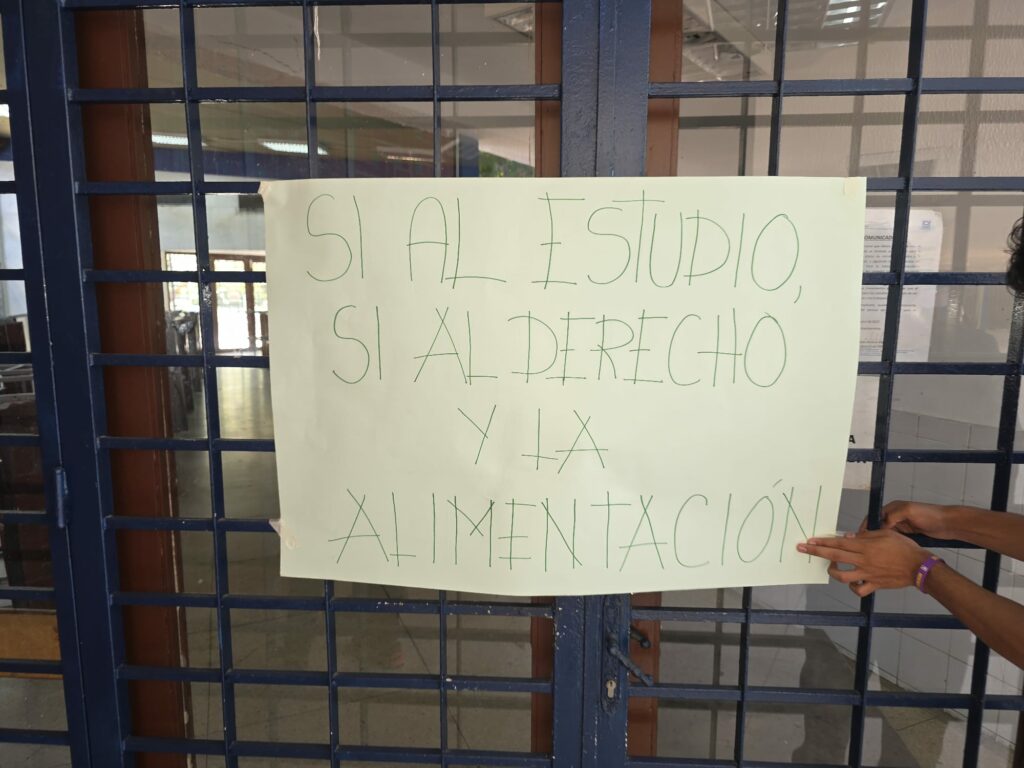 SI AL ESTUDIO,
SI AL DERECHO
Y LA
ALIMENTACIÓN
COMUNICADO